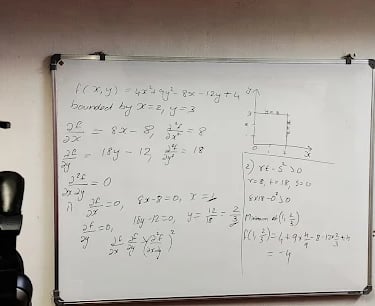 f(x,y) = 4x²+9y²-8x-12y+4
bounded by x=2, y=3
∂f/∂x = 8x-8, ∂²f/∂x² = 8
∂f/∂y = 18y-12, ∂²f/∂y² = 18
∂²f/∂x∂y = 0
∂f/∂x = 0, 8x-8=0, x=1
∂f/∂y = 0, 18y-12=0, y = 12/18 = 2/3
y
x
0
2) rt-s²>0
r=8, t=18, s=0
8×18-0²>0
Minimum at (1, 2/3)
f(1, 2/3) = 4+9×4/9-8-12×2/3+4
= -4